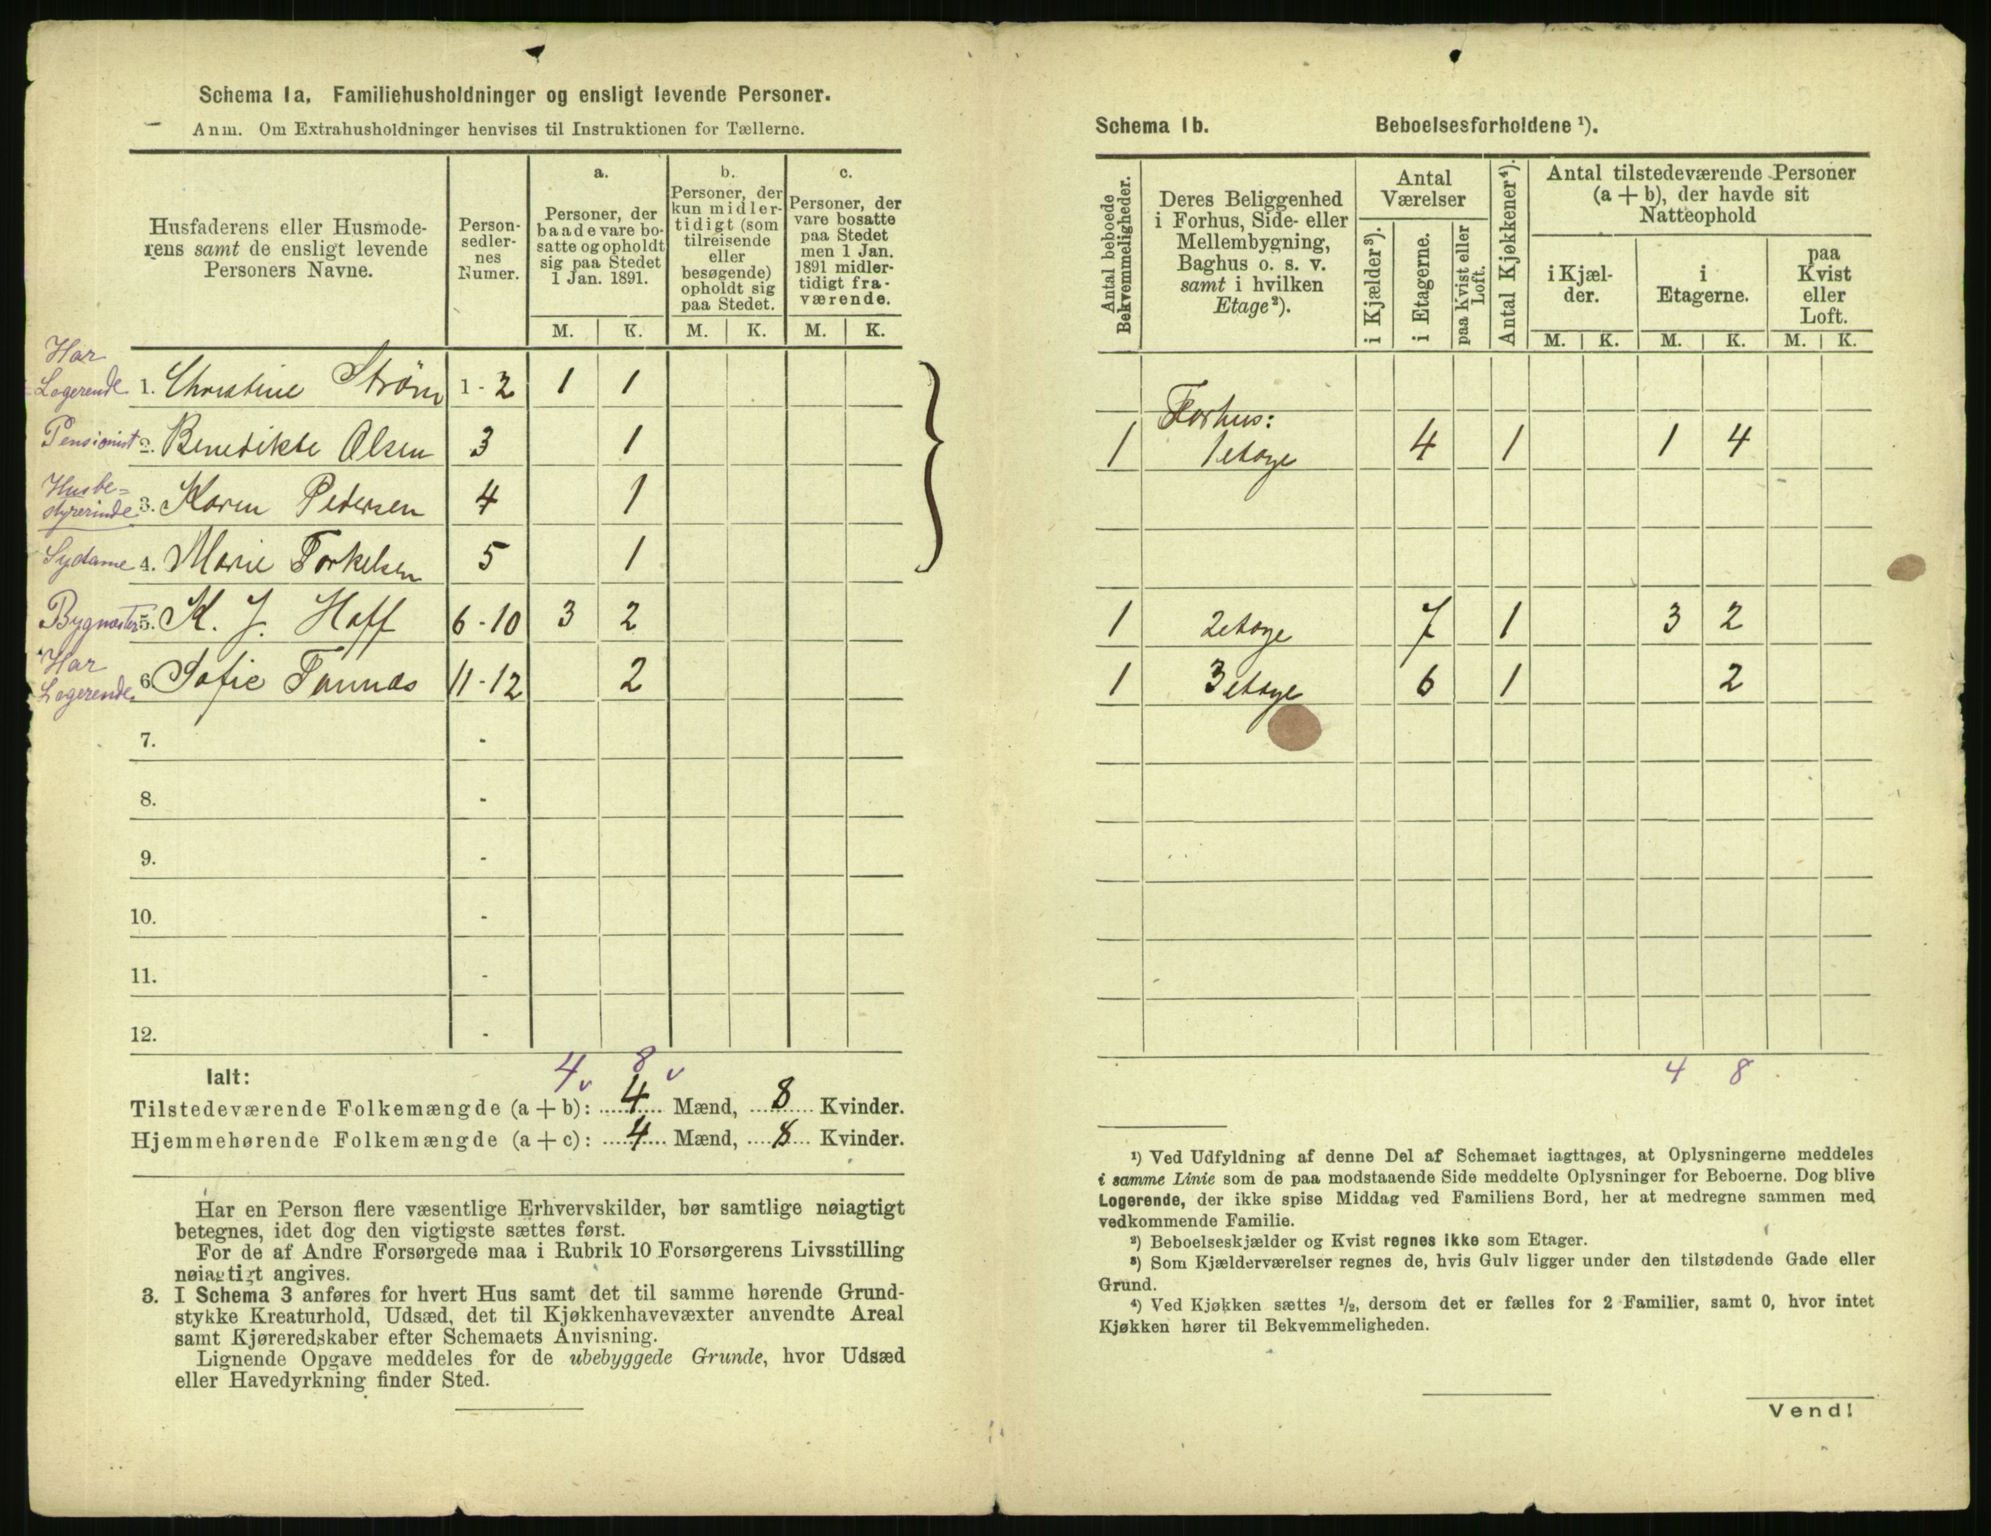 Schema 1a. Familiehusholdninger og ensligt levende Personer.
Anm. Om Extrahusholdninger henvises til Instruktionen for Tællerne.
Husfaderens eller Husmode-
rens samt de ensligt levende
Personers Navne.
Person-
sedler-
nes
Numer.
a.
Personer, der
baade vare bo-
satte og opholdt
sig paa Stedet
1 Jan. 1891.
b.
Personer, der
kun midler-
tidigt (som
tilreisende
eller
besøgende)
opholdt sig
paa Stedet.
c.
Personer, der
vare bosatte
paa Stedet
men 1 Jan.
1891 midler-
tidigt fra-
værende.
M. K. M. K. M. K.
Har
Logerende 1. Christine Strøm 1-2 1 1
Pensionist 2. Benedikte Olsen 3 1
Husbe=
styrerinde 3. Karen Pedersen 4 1
Sydame 4. Marie Torkelsen 5 1
Bygmester 5. K. J. Hoff 6-10 3 2
Har
Logerende 6. Sofie Tannæs 11-12 2
7. -
8. -
9. -
10. -
11. -
12. -
4 v 8 v
Ialt:
Tilstedeværende Folkemængde (a + b): 4 Mænd, 8 Kvinder.
Hjemmehørende Folkemængde (a + c): 4 Mænd, 8 Kvinder.
Har en Person flere væsentlige Erhvervskilder, bør samtlige nøiagtigt
betegnes, idet dog den vigtigste sættes først.
For de af Andre Forsørgede maa i Rubrik 10 Forsørgerens Livsstilling
nøiagtigt angives.
3. I Schema 3 anføres for hvert Hus samt det til samme hørende Grund-
stykke Kreaturhold, Udsæd, det til Kjøkkenhavevæxter anvendte Areal
samt Kjøreredskaber efter Schemaets Anvisning.
Lignende Opgave meddeles for de ubebyggede Grunde, hvor Udsæd
eller Havedyrkning finder Sted.
Schema 1b. Beboelsesforholdene ¹).
Antal beboede
Bekvemmeligheder.
Deres Beliggenhed
i Forhus, Side- eller
Mellembygning,
Baghus o. s. v.
samt i hvilken
Etage²).
Antal
Værelser
i Kjælder³).
i Etagerne.
paa Kvist eller
Loft.
Antal Kjøkkener⁴).
Antal tilstedeværende Personer
(a + b), der havde sit
Natteophold
i Kjæl-
der.
i
Etagerne.
paa
Kvist
eller
Loft.
M. K. M. K. M. K.
Forhus:
1 1 etage 4 1 1 4
1 2 etage 7 1 3 2
1 3 etage 6 1 2
4 8
¹) Ved Udfyldning af denne Del af Schemaet iagttages, at Oplysningerne meddeles
i samme Linie som de paa modstaaende Side meddelte Oplysninger for Beboerne. Dog blive
Logerende, der ikke spise Middag ved Familiens Bord, her at medregne sammen med
vedkommende Familie.
²) Beboelseskjælder og Kvist regnes ikke som Etager.
³) Som Kjælderværelser regnes de, hvis Gulv ligger under den tilstødende Gade eller
Grund.
⁴) Ved Kjøkken sættes ½, dersom det er fælles for 2 Familier, samt 0, hvor intet
Kjøkken hører til Bekvemmeligheden.
Vend!